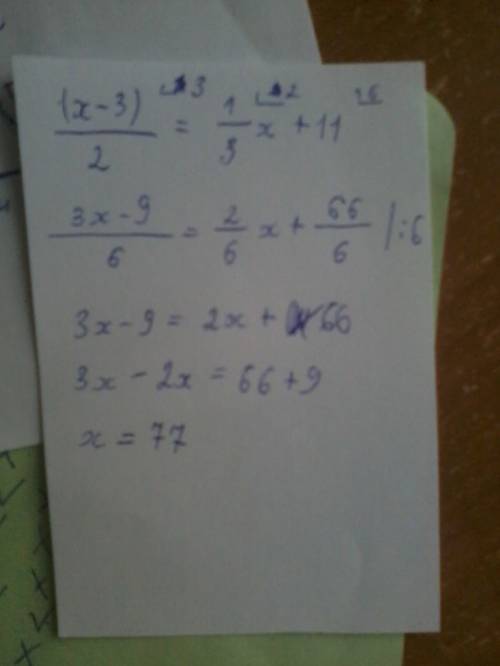 (x-3)/2 ⌊3 = 1/3 x ⌊2 + 11 ⌊6
3x-9/6 = 2/6 x + 66/6 | :6
3x-9 = 2x + 66
3x - 2x = 66+9
x = 77